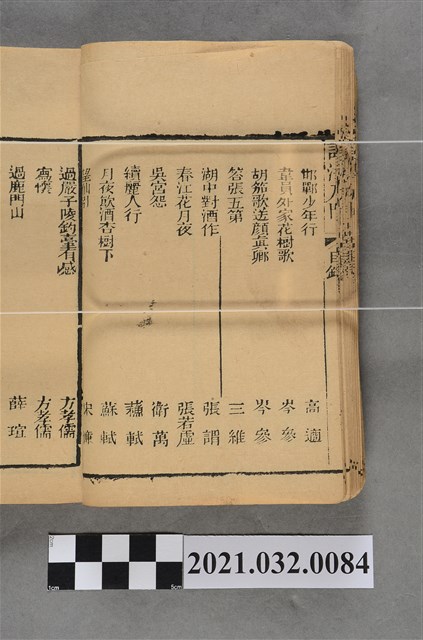 邯鄲少年行 高適
韋員外家花樹歌 岑參
胡笳歌送顏真卿 岑參
答張五弟 王維
湖中對酒作 張謂
春江花月夜 張若虛
吳宮怨 衛萬
續麗人行 蘇軾
月夜飲酒杏樹下 蘇軾
宋濂
過嚴子陵釣臺有感 方孝儒
寓懷 方孝儒
過鹿門山 薛瑄
2cm
1cm
5cm
2021.032.0084